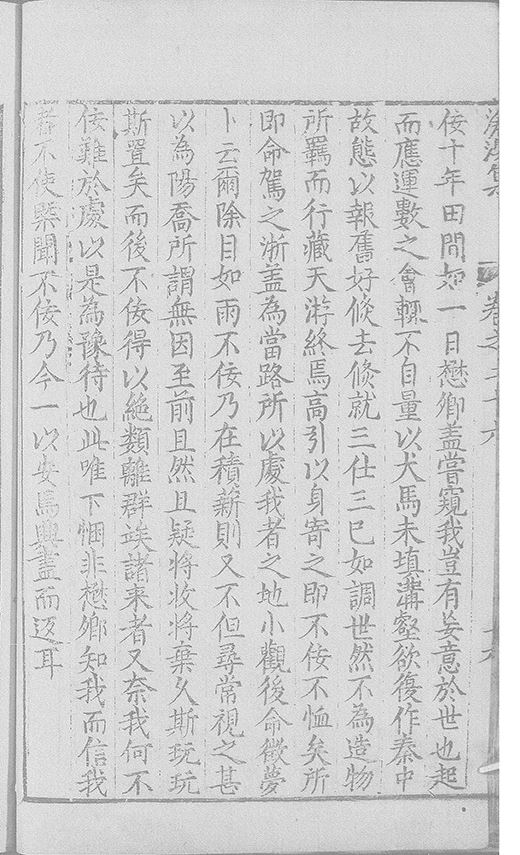 滄溟集 卷之二十六
佞十年田間如一日懋卿盖嘗窺我豈有妄意於世也起
而應運數之會輒不自量以犬馬未填溝壑欲復作秦中
故態以報舊好倐去倐就三仕三已如調世然不為造物
所羈而行藏天游終焉高引以身寄之即不佞不恤矣所
即命駕之浙盖為當路所以處我者之地小觀後命徵夢
卜云爾除目如雨不佞乃在積薪則又不但尋常視之甚
以為陽喬所謂無因至前且然且疑將收將棄久斯玩玩
斯置矣而後不佞得以絕類離群竢諸来者又奈我何不
佞難於處以是為豫待也此唯下悃非懋卿知我而信我
者不使槩聞不佞乃今一以安馬與盡而返耳